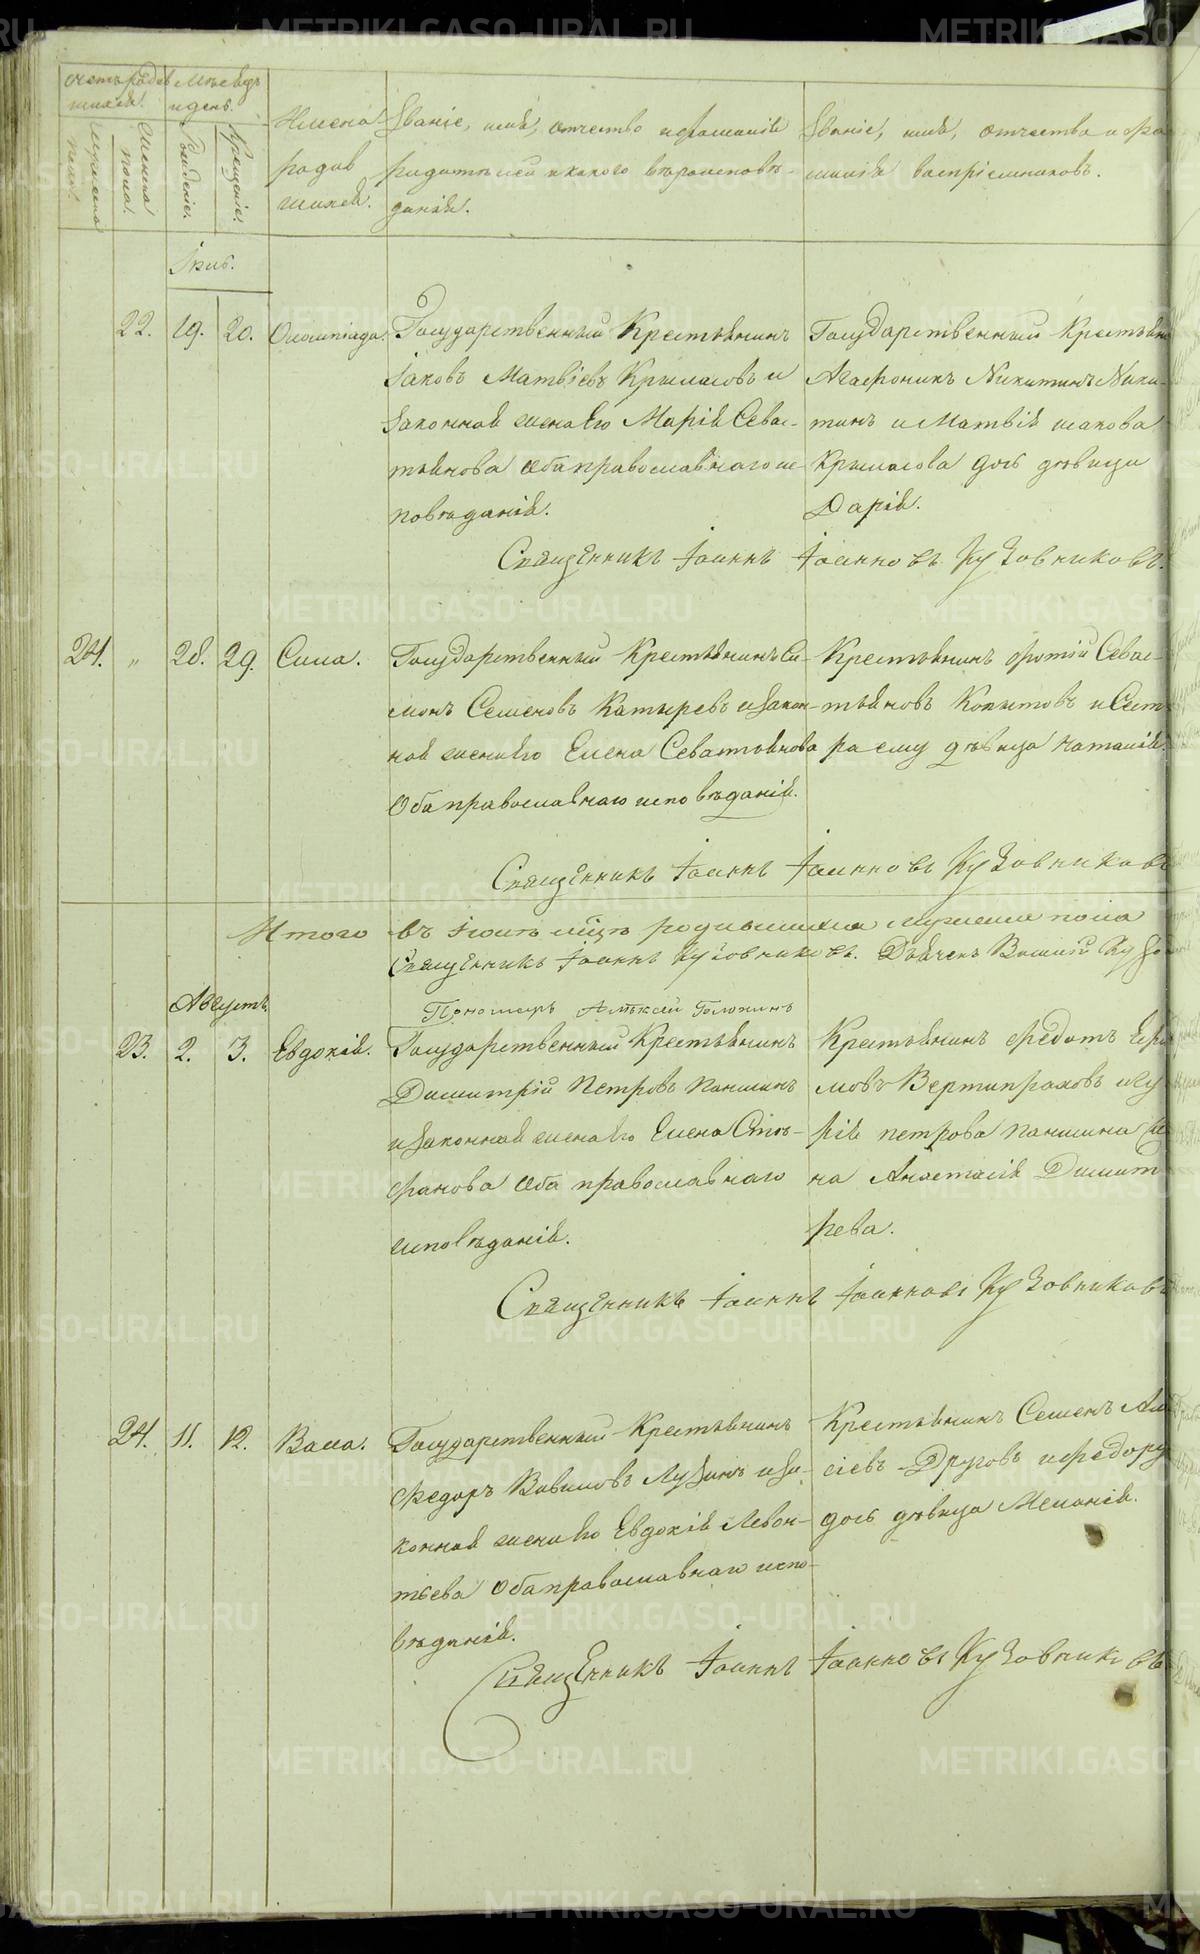 METRIKI.GASO-URAL.RU
Счетъ родив
шихся.
Мѣсяцъ
и день.
Мужеска
пола.
Женска
пола.
Рожденіе.
Крещеніе.
Имена
родив
шихся.
Званіе, имя, отчество и фамилія
родителей и какого вѣроисповѣ-
данія.
Званіе, имя, отчество и фа
милія воспріемниковъ.
Іюль.
22. 19. 20. Олимпіада.
Государственный Крестьянинъ
Іаковъ Матвѣевъ Крыласовъ и
законная жена его Марія Севас-
тьянова оба православнаго ис-
повѣданія.
Государственный Крестьянин
Агафоникъ Никитинъ Ники-
тинъ и Матвія
Крыласова дочь дѣвица
Дарія.
Священникъ Іоаннъ Іоанновъ Кузовниковъ.
24. " 28. 29. Сила.
Государственный Крестьянинъ Си-
монъ Семеновъ Катыревъ и закон-
ная жена его Елена Севастьянова
Оба православнаго исповѣданія.
Крестьянинъ Фотій Севас-
тьяновъ Копытовъ и Сест
ра ему дѣвица Наталія.
Священникъ Іоаннъ Іоанновъ Кузовников
Итого въ Іюлѣ мцѣ родившихся мужеска пола
Священникъ Іоаннъ Кузовниковъ. Дьячекъ Кузов
Пономарь Алексѣй
Августъ
23. 2. 3. Евдокія.
Государственный Крестьянинъ
Димитрій Петровъ Паншинъ
и законная жена его Елена Сте-
фанова оба православнаго
исповѣданія.
Крестьянинъ Федотъ Ефи
мовъ Вертипраховъ и Гу
рія Петрова Паншина же
на Анастасія Димит
рева.
Священникъ Іоаннъ Іоанновъ Кузовников
24. 11. 12. Васса.
Государственный Крестьянинъ
Федоръ Вавиловъ Лузинъ и за-
конная жена его Евдокія Левон-
тьева Оба православнаго испо-
вѣданія.
Крестьянинъ Семенъ Алек
сіевъ Друговъ и Федору
дочь дѣвица Меланія.
Священникъ Іоаннъ Іоанновъ Кузовниковъ